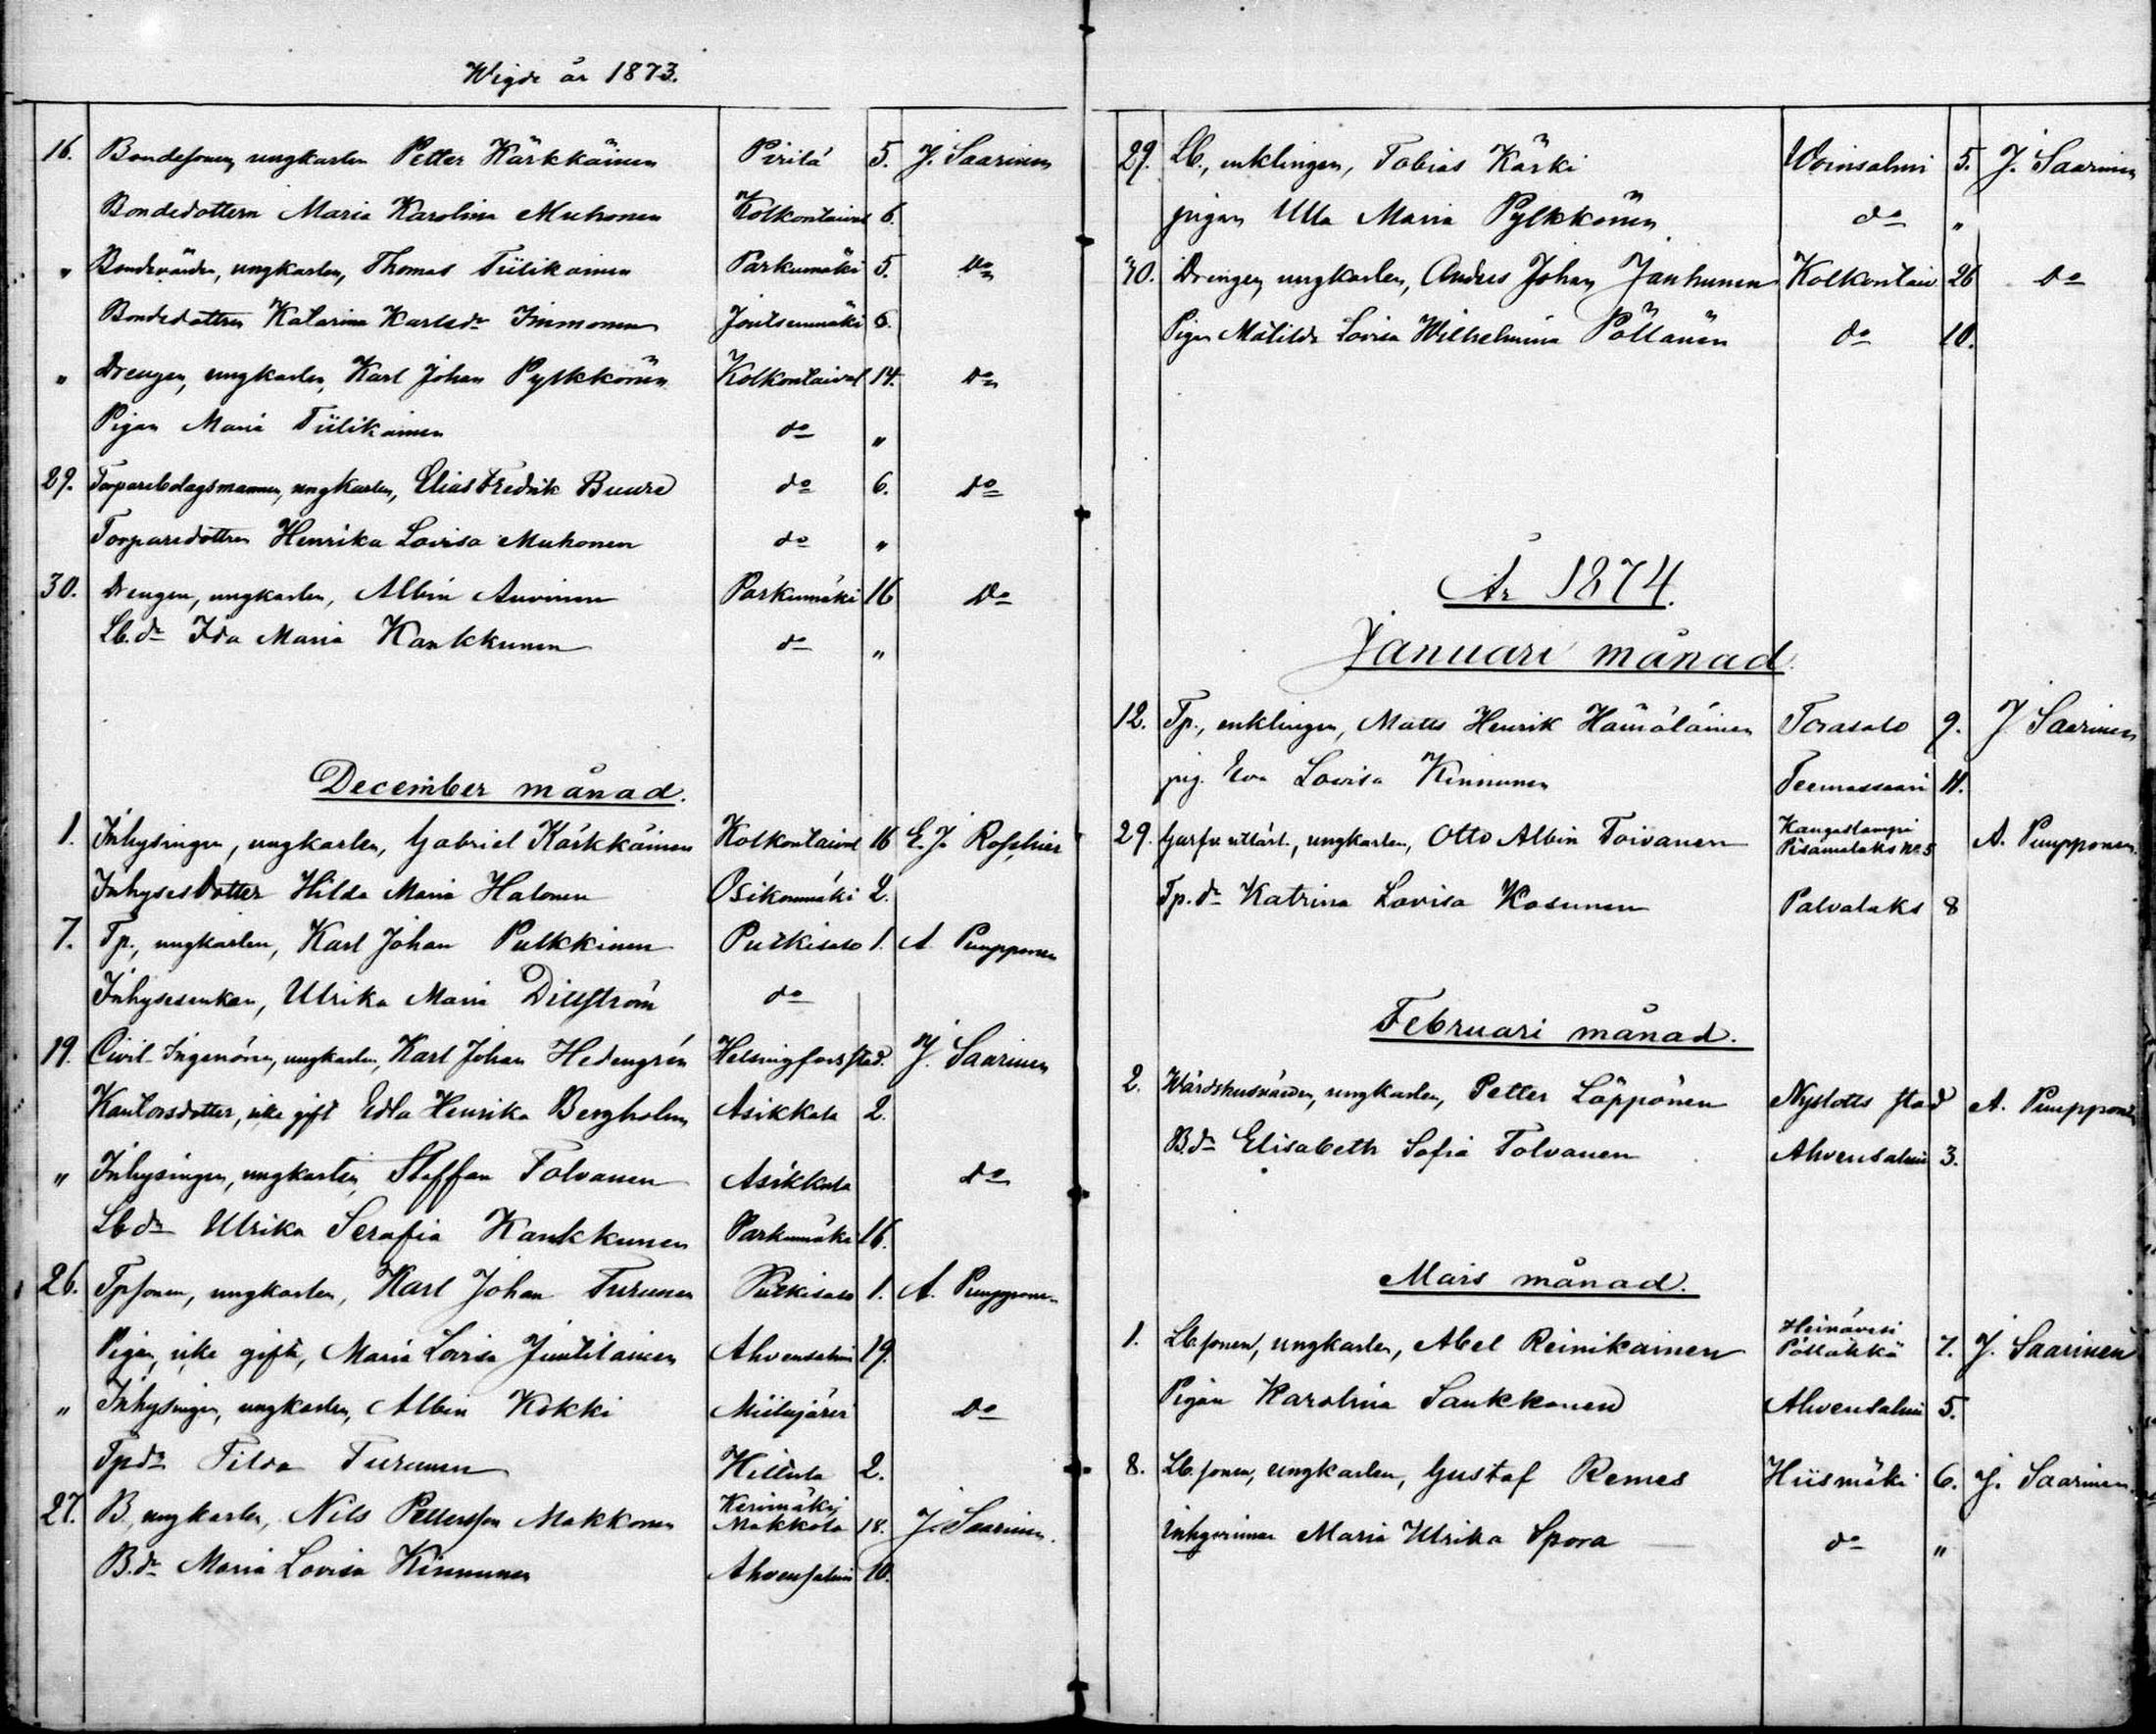 Wigde år 1873.
16. Bondesonen, ungkarlen Petter Kärkkäinen Pirilä 5. J. Saarinen
Bondedottern Maria Karolina Muhonen Kolkontaival 6.
" Bondevärden, ungkarlen, Thomas Tiilikainen Parkumäki 5. Do
Bondedottren Katarina Karlsdr Immonen Joutsenmäki 6.
" Drengen, ungkarlen, Karl Johan Pylkkönen Kolkontaival 14. Do
Pigan Maria Tiilikainen do "
29. Torparebolagsmannen, ungkarlen, Elias Fredrik Buure do 6. Do
Torparedottren Henrika Lovisa Muhonen do "
30. Drengen, ungkarlen, Albin Auvinen Parkumäki 16 Do
Lb. dr Ida Maria Kankkunen do "
December månad.
1. Inhysingen, ungkarlen, Gabriel Kärkkäinen Kolkontaival 16 E. J. Roschier
Inhysesdotter Hilda Maria Halonen Osikonmäki 2.
7. Tp., ungkarlen, Karl Johan Pulkkinen Putkisalo 1. A. Pumpponen
Inhysesenkan, Ulrika Maria Dillström do
19. Civil-Ingenören, ungkarlen, Karl Johan Hedengrén Helsingfors stad. J. Saarinen
Kantorsdotter, icke gift Edla Henrika Bergholm Asikkala 2.
" Inhysingen, ungkarlen, Staffan Tolvanen Asikkala do
Lb dr Ulrika Serafia Kankkunen Parkumäki 16.
26. Tpsonen, ungkarlen, Karl Johan Turunen Putkisalo 1. A. Pumpponen
Pigan, icke gifta, Maria Lovisa Juutilainen Ahvensalmi 19.
" Inhysingen, ungkarlen, Albin Kokki Miilujärvi Do
Tpdr Tilda Turunen Hillula 2.
27. B., ungkarlen, Nils Pettersson Makkonen Kerimäki, Makkola 18. J. Saarinen.
B. dr Maria Lovisa Kinnunen Ahvensalmi 10.
29. Lb., enklingen, Tobias Kärki Woinsalmi 5. J. Saarinen
pigan Ulla Maria Pylkkönen do "
30. Drengen, ungkarlen, Anders Johan Janhunen Kolkontaiv 26 Do
Pigan Matilda Lovisa Wilhelmina Pöllänen do 10.
År 1874.
Januari månad.
12. Tp., enklingen, Matts Henrik Hämäläinen Torasalo 9. J. Saarinen
pig. Eva Lovisa Kinnunen Teemassaari 11.
Kangaslampi
29. ungkarlen, Otto Albin Toivanen Pisamalaks No. 5 A. Pumpponen
Tp. dr Katrina Lovisa Kosunen Palvalaks 8
Februari månad.
2. Wärdshusvärden, ungkarlen, Petter Löppönen Nyslotts stad A. Pumpponen
B. dr Elisabeth Sofia Tolvanen Ahvensalmi 3.
Mars månad.
Heinävesi
1. Lb. sonen, ungkarlen, Abel Reinikainen Pölläkkä 7. J. Saarinen
Pigan Karolina Saukkonen Ahvensalmi 5.
8. Lb. sonen, ungkarlen, Gustaf Remes Hiismäki 6. J. Saarinen.
Maria Ulrika Spora do "